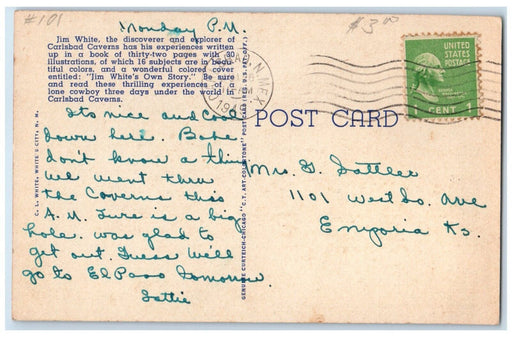 #101
$3.00
Monday P.M.
Jim White, the discoverer and explorer of
Carlsbad Caverns has his experiences written
up in a book of thirty-two pages with 30
illustrations, of which 16 subjects are in beau-
tiful colors, and a wonderful colored cover
entitled: "Jim White's Own Story." Be sure
and read these thrilling experiences of a
lone cowboy three days under the world in
Carlsbad Caverns.
Its nice and cool
down here.
don't know a thing
we went thru
the Caverns this
A.M. Sure is a big
hole. was glad to
get out. Guess we'll
go to El Paso tomorrow.
C. L. WHITE, WHITE'S CITY, N. M.
GENUINE CURTEICH-CHICAGO "C.T. ART-COLORTONE" POST CARD (REG. U.S. PAT. OFF.)
N.MEX.
POST CARD
UNITED
STATES
POSTAGE
CENT 1
Mrs. G. Sattler
1101 West So. Ave
Emporia Ks.